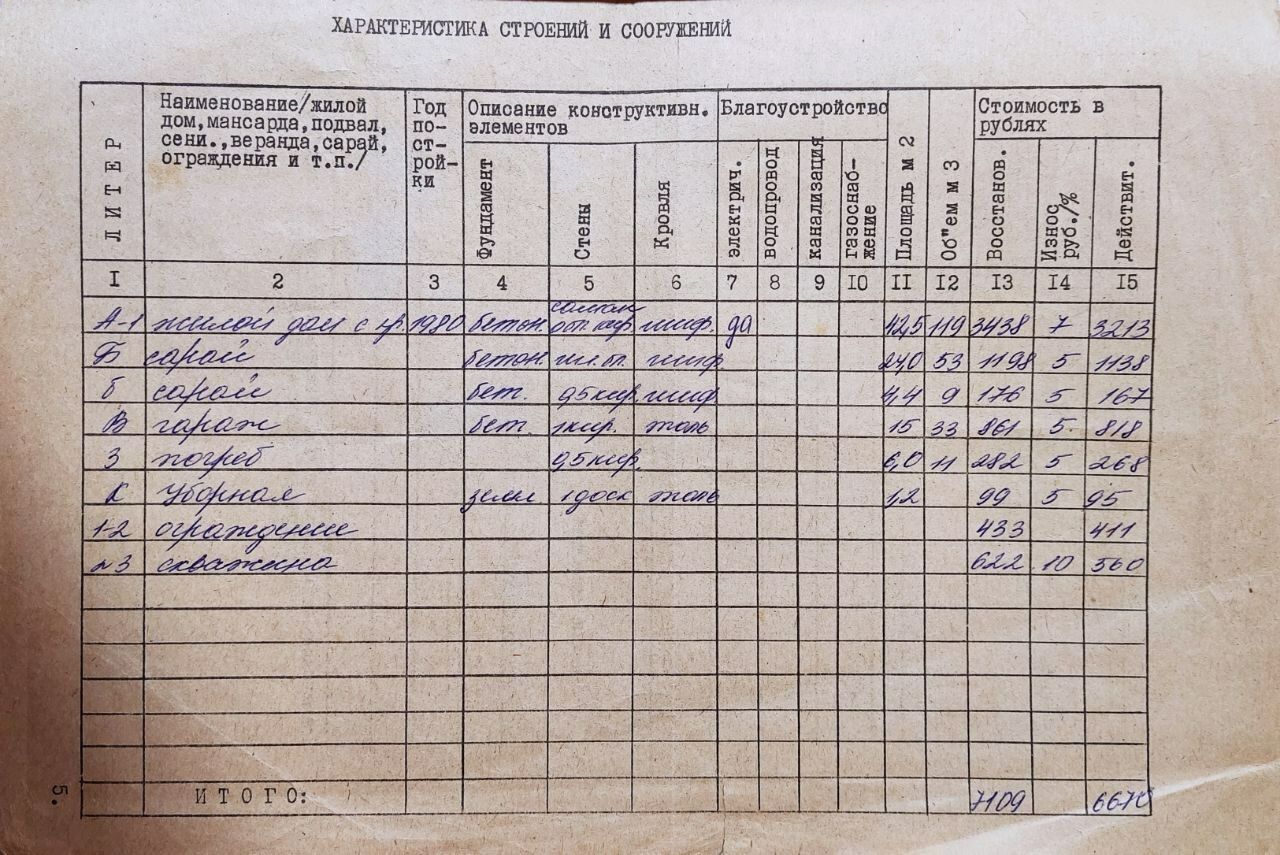 ХАРАКТЕРИСТИКА СТРОЕНИЙ И СООРУЖЕНИЙ
ЛИТЕР
Наименование/жилой
дом,мансарда,подвал,
сени.,веранда,сарай,
ограждения и т.п./
Год
по-
ст-
рой-
ки
Описание конструктивн.
элементов
Фундамент
Стены
Кровля
Благоустройство
электрич.
водопровод
канализация
газоснаб-
жение
Площадь м 2
Об"ем м 3
Стоимость в
рублях
Восстанов.
Износ
руб./%
Действит.
I 2 3 4 5 6 7 8 9 10 II 12 13 14 15
саман
А-1 жилой дом с пр. 1980 бетон. обл.кир. шиф. да 42,5 119 3438 7 3213
Б сарай бетон. шл.бл. шиф 24,0 53 1198 5 1138
б сарай бет. 0,5 кир. шиф 4,4 9 176 5 167
В гараж бет. 1кир. толь 15 33 861 5 818
З погреб 0,5 кир. 6,0 11 282 5 268
К Уборная земл 1доск толь 1,2 99 5 95
1-2 ограждение 433 411
№3 скважина 622 10 560
ИТОГО: 7109 6670
5.